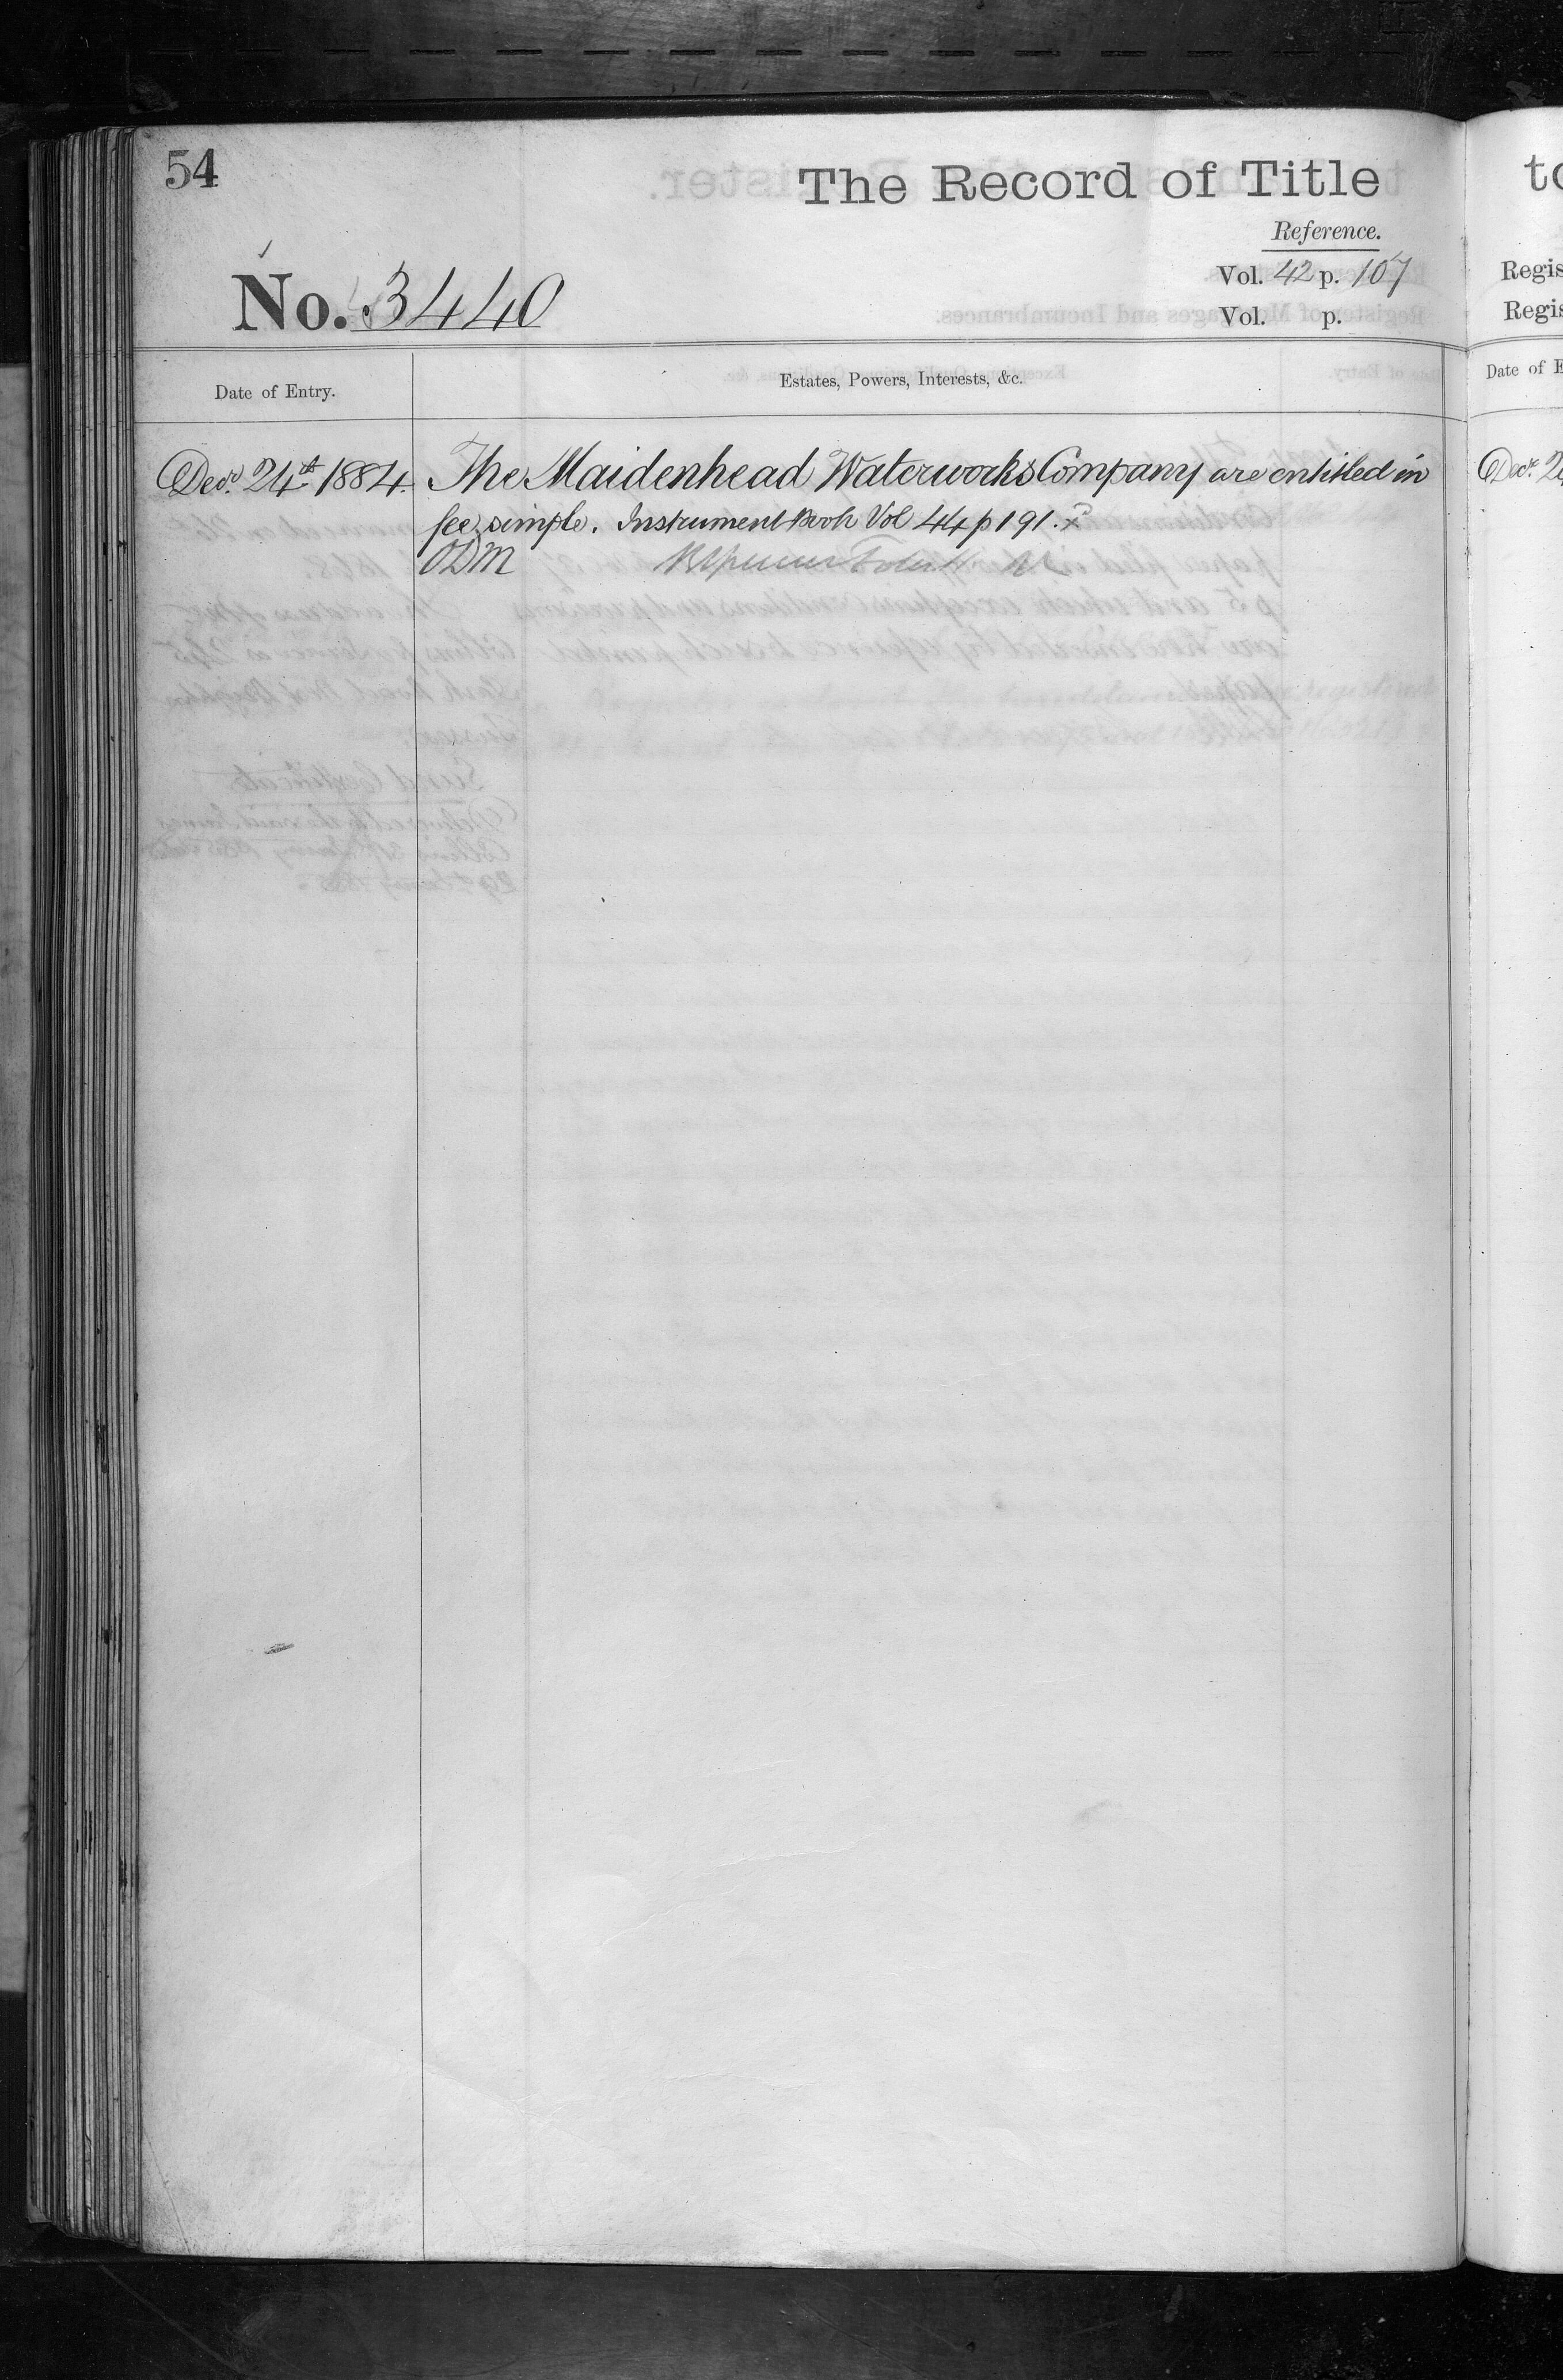 54
The Record of Title
Reference.
No. 3440
Vol. 42 p. 107
Vol. p.
Date of Entry.
Estates, Powers, Interests, &c.
Decr. 24th 1884. The Maidenhead Waterworks Company are entitled in
fee simple. Instrument Book Vol 44 p 191.
ODM
to
Regis
Regis
Date of E
Decr. 24